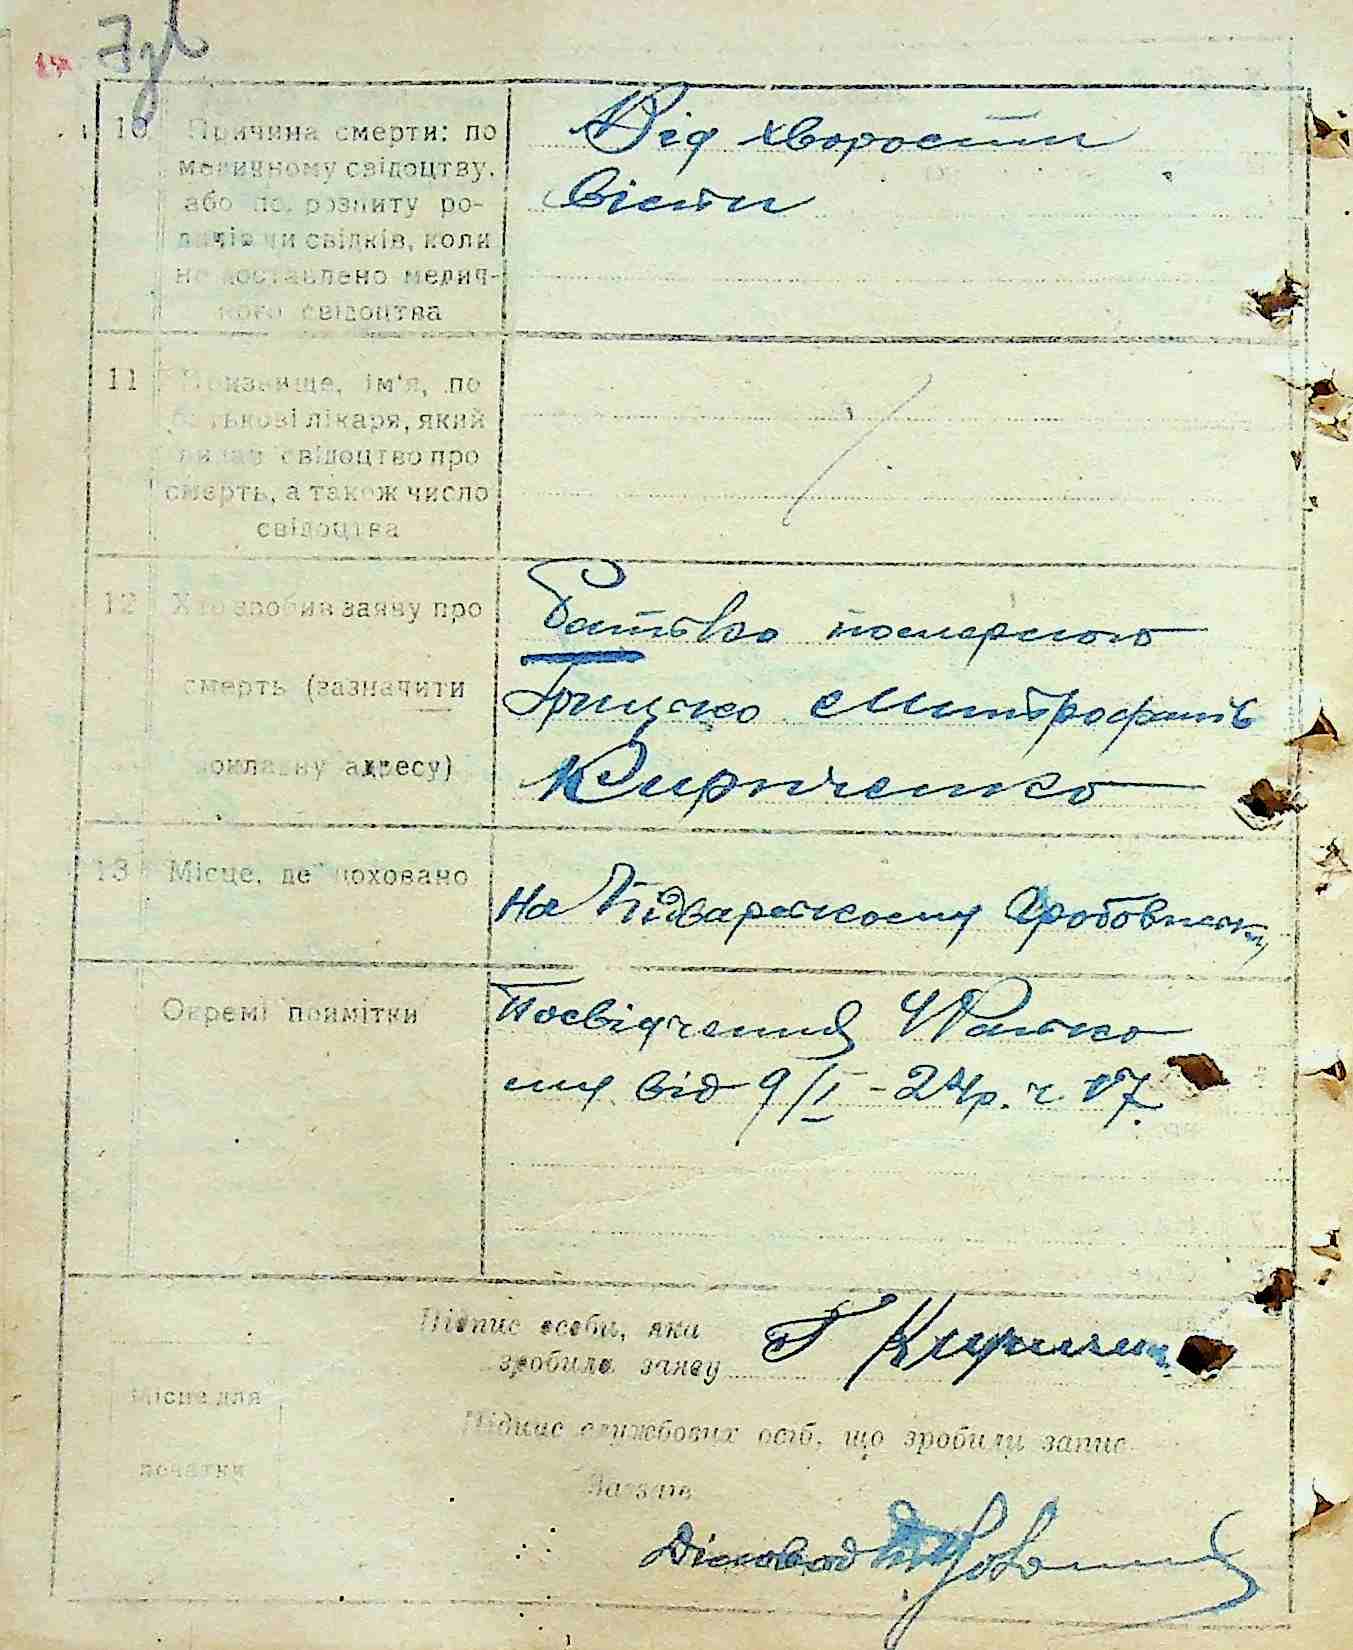 10 Причина смерти: по
медичному свідоцтву,
або по розпиту ро-
дичів чи свідків, коли
не доставлено медич-
ного свідоцтва
Від хворости
вісти
11 Призвище, ім'я, по
батькові лікаря, який
видав свідоцтво про
смерть, а також число
свідоцтва
12 Хто зробив заяву про
смерть (зазначити
докладну адресу)
Батько померлого
Грицько Митрофанів
Кириченко
13 Місце, де поховано
На Підварському гробовищі
Окремі примітки
Посвідчення
від 9/I - 24р. ч. 17.
Підпис особи, яка
зробила заяву Г Кириченко
Місце для
печатки
Підпис службових осіб, що зробили запис
Завзагс
Діловод